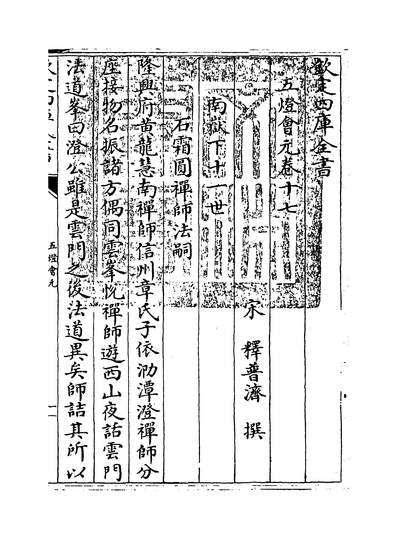 欽定四庫全書
五燈會元卷十七
宋 釋普濟 撰
南嶽下十一世
石霜圓禪師法嗣
隆興府黃龍慧南禪師信州章氏子依泐潭澄禪師分
座接物名振諸方偶同雲峯恱禪師遊西山夜話雲門
法道峯曰澄公雖是雲門之後法道異矣師詰其所以
五燈會元
一